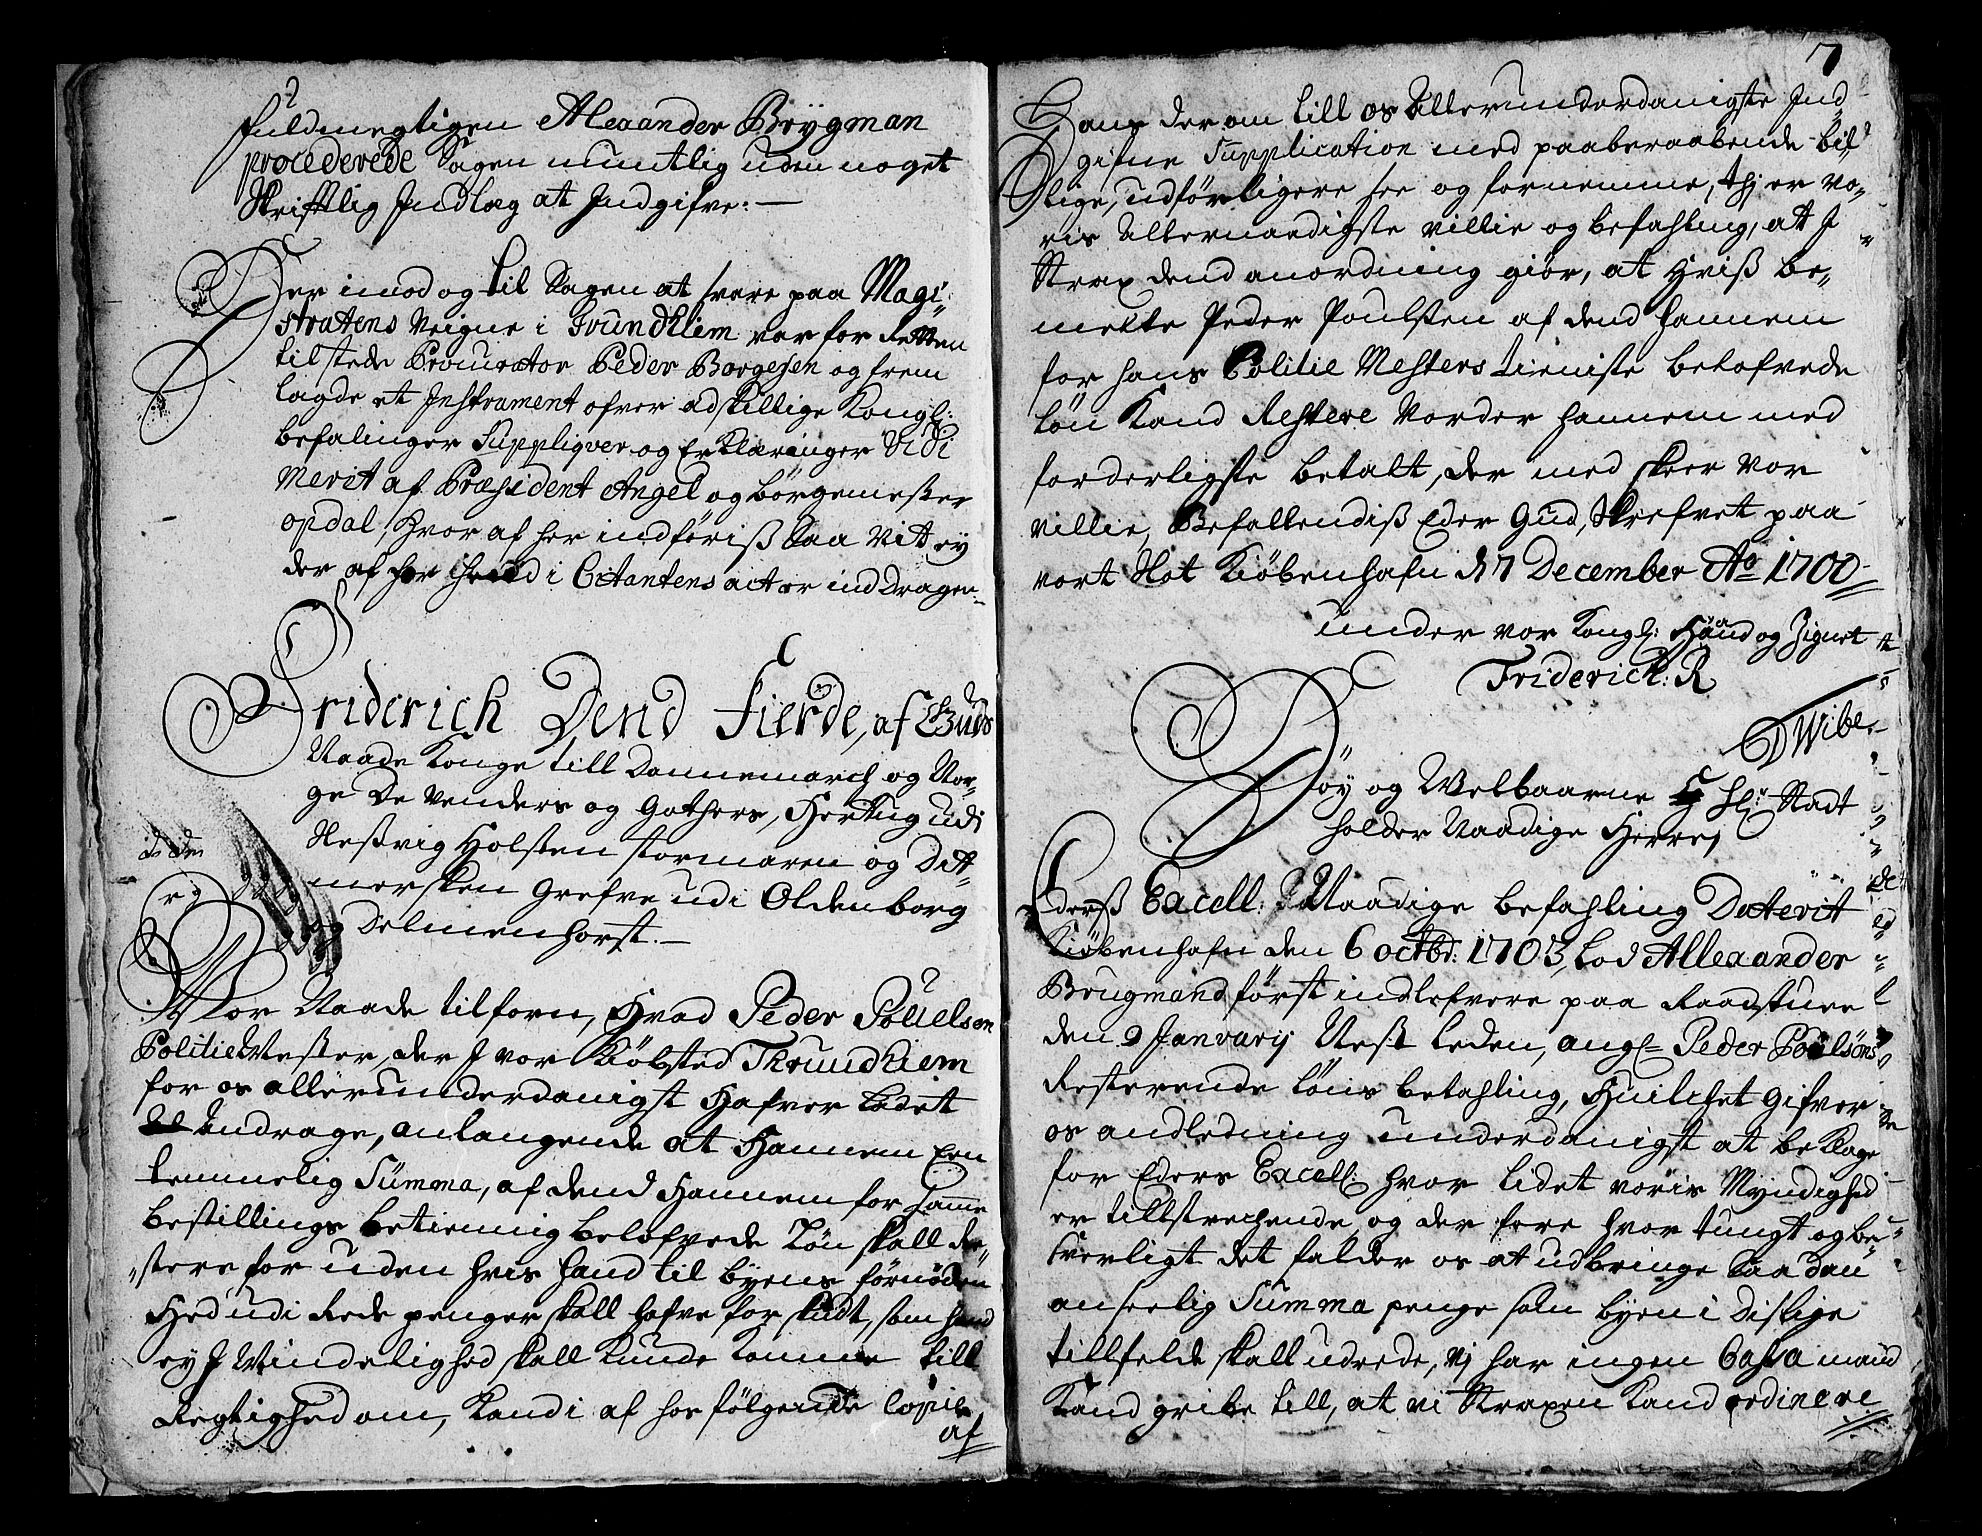 fuldmegtigen Alexander Brygman
procederede Sagen mundtlig uden noget
Skrifftlig Indlæg at Indgifve:—
Der imod og til Sagen at svare paa Magi-
stratens Veigne i Trundhiem var for Retten
tilstede Procurator Peder Borgesen og frem
lagde et Instrument ofver adskillige Kongl:
befalinger Suppliqver og Erklæringer Vidi
Merit af Præsident Angel og børgemester
opdal, hvor af her indføriß Saa Vit ey
der af her i Citantens acter inddragen:
Friderich Dend Fierde, af Guds
Naade Konge till Dannemarch og Nor-
ge De Venders og Gothers, Hertug udi
Slesßvig Holsten Stormaren og Dit-
mersken Grefve udi Oldenborg
og Delmenhorst.—
Vor Naade tilforn, Hvad Peder Pouelsen
Politie Mester, der I vor Kiøbsted Thrundhiem
for os allerunderdanigst Hafver Ladet
andrage, anlangende at Hannem Een
temmelig Summa, af dend Hannem for samme
bestillings betienning belofvede Løn skall Re-
stere for uden hvis hand til byens fornøden
Hed udi Rede penger skall hafve for skudt, som hand
ey I Mindelighed skall kunde komme till
Regtighed om, Kand i af hos følgende Copie
af
7
Hans der om till os Allerunderdanigste Ind
gifne Supplication med paaberaabende bil
lige, udførligere see og fornemme, thi er vo-
ris Allernaadigste villie og befahling, at I
Strax dend anordning giør, at Hviß be-
melte Peder Poulsten af dend hannem
for hans Politie Mesters tieniste belofvede
Løn Kand Restere Vorder hannem med
forderligste betalt, der med skeer Vor
villie, Befallendiß Eder Gud, Skrefvet paa
vort Slot Kiøbenhafn d 7 December Ao 1700
under vor Kongl: Haand og Zignet
Friderich: R
D Wibe.
Høy og Welbaarne H Hr: Stadt
holder Naadige Herre,
Ederß Excell: Naadige befahling Daterit
Kiøbenhafn den 6 octbr: 1703, lod Allexander
Brugmand først indlefvere paa Raadstuen
den 9 Janvarij Nest leden, angl= Peder Poulsøns
Resterende Løns betahling, Huilchet Gifver
os andledning underdanigst at beklage
for Eders Excell: hvor lidet voris Myndighed
er tillstrechende, og der fore hvor tungt og be-
sverligt det falder os at udbringe Saadan
anseelig Summa penge som byen i dislige
tillfelde skall udrede, vj har ingen Cassa mand
Kand gribe till, at vi Straxen Kand ordinere